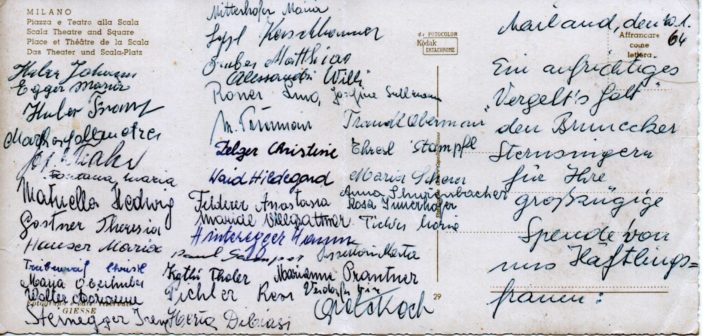 MILANO
Piazza e Teatro alla Scala
Scala Theatre and Square
Place et Théâtre de la Scala
Das Theater und Scala-Platz
Huber Johann
Egger Maria
Huber Franz
Fontana Maria
Matuella Hedwig
Gostner Theresia
Hauser Maria
Maria Oberhuber
Waller Marianna
GIESSE
Steinegger Irene
Mitterhofer Maria
Sepl Kerschbaumer
Gruber Matthias
Alessandri Willi
Roner Luno, Josefine
M. Tirmair
Zelzer Christine
Waid Hildegard
Federer Anastasia
Mariade Villgattner
Hinteregger Hanna
Paul
Kathi Thaler
Pichler Resi
Maria Debiasi
Traudl Obermair
Ehrel Stampfl
Maria
Anna
Rosa Innerhofer
Pichler Maria
Marta
Marianna Prantner
Koch
da FOTOCOLOR
Kodak
EKTACHROME
29
Affrancare
come
lettera
Mailand, den 10.1.
64
Ein aufrichtiges
"Vergelt's Gott
den Brunecker
Sternsingern
für Ihre
großzügige
Spende von
uns Häftlings-
frauen!